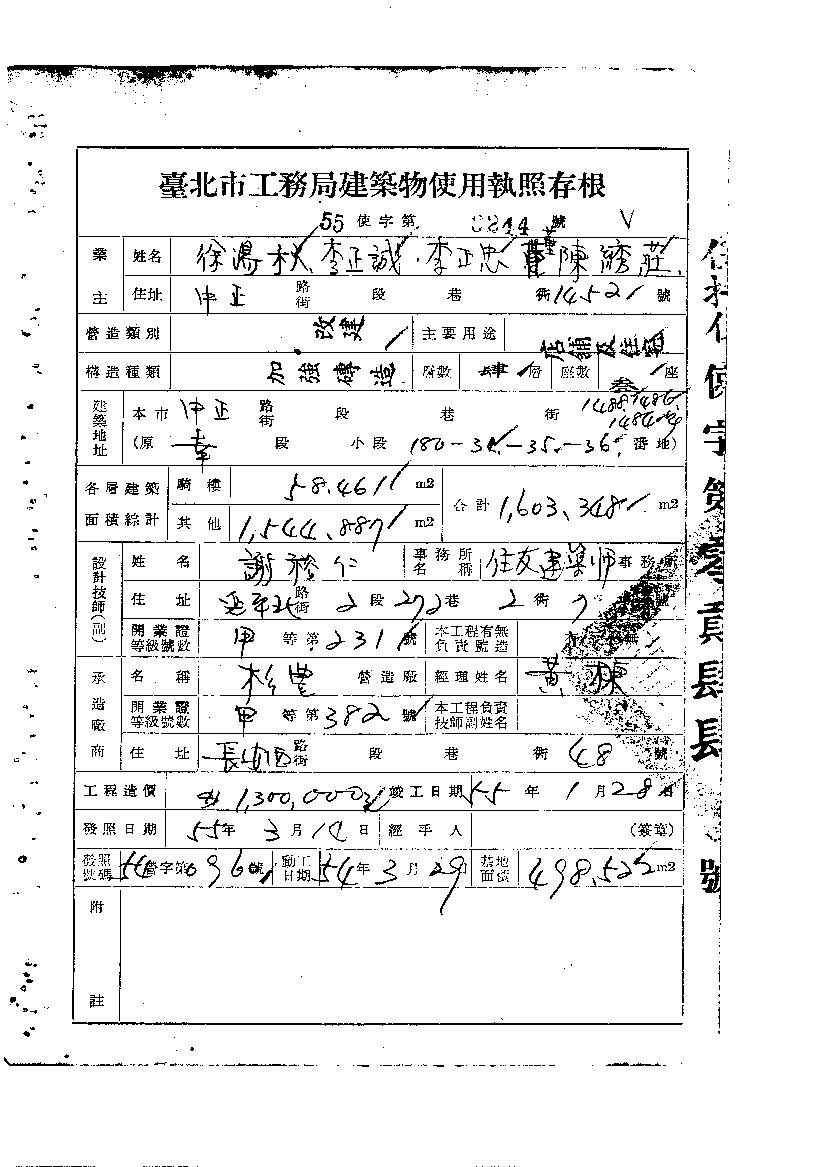 臺北市工務局建築物使用執照存根
55 使字第 0244 號 V
業主 姓名 徐湯秋 李正誠·李正忠 董陳綉莊
住址 中正 路街 段 巷 街 1452 號
營造類別 改建 主要用途 店鋪及住宅
構造種類 加強磚造 層數 肆 層 座數 叁 座
建築地址 本市 中正 路街 段 巷 街 1488.1486. 1484
(原 幸 段 小段 180-34.-35.-36. 番地)
各層建築面積綜計 騎樓 58.461 m2 合計 1,603.348 m2
其他 1,544.887 m2
設計技師(副) 姓名 謝 仁 事務所名稱 住友建築師事務所
住址 延平北 路街 2 段 272 巷 2 街 7 號
開業證等級號數 甲 等第 231 號 本工程有無負責監造
承造廠商 名稱 杉豊 營造廠 經理姓名 黃棟
開業證等級號數 甲 等第 382 號 本工程負責技師副姓名
住址 長安西 路街 段 巷 街 48 號
工程造價 1,300,000 竣工日期 55 年 1 月 28 日
發照日期 55 年 3 月 14 日 經手人 (簽章)
發照號碼 54 營字第 0960 號 動工日期 54 年 3 月 29 日 基地面積 498.522 m2
附註
使字第零貳肆肆號